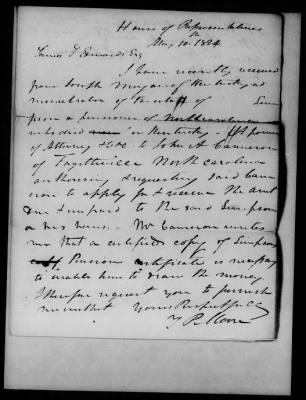 House of Representatives
May 10th 1834
James L Edwards Esq
I have recently received
from Joseph Morgan of Kentucky ad
ministrator of the estate of Simp
son a pensioner of North Carolina
who died in Kentucky - A power
of Attorney & to John A Cameron
of Fayetteville North Carolina
authorising & requesting said Came
ron to apply for & receive the amt
due & unpaid to the said Simpson
or his heirs. Mr Cameron writes
me that a certified copy of Simpsons
Pension certificate is necessary
to enable him to draw the money
I therefore request you to furnish
me with it Yours Respectfully
T P Moore